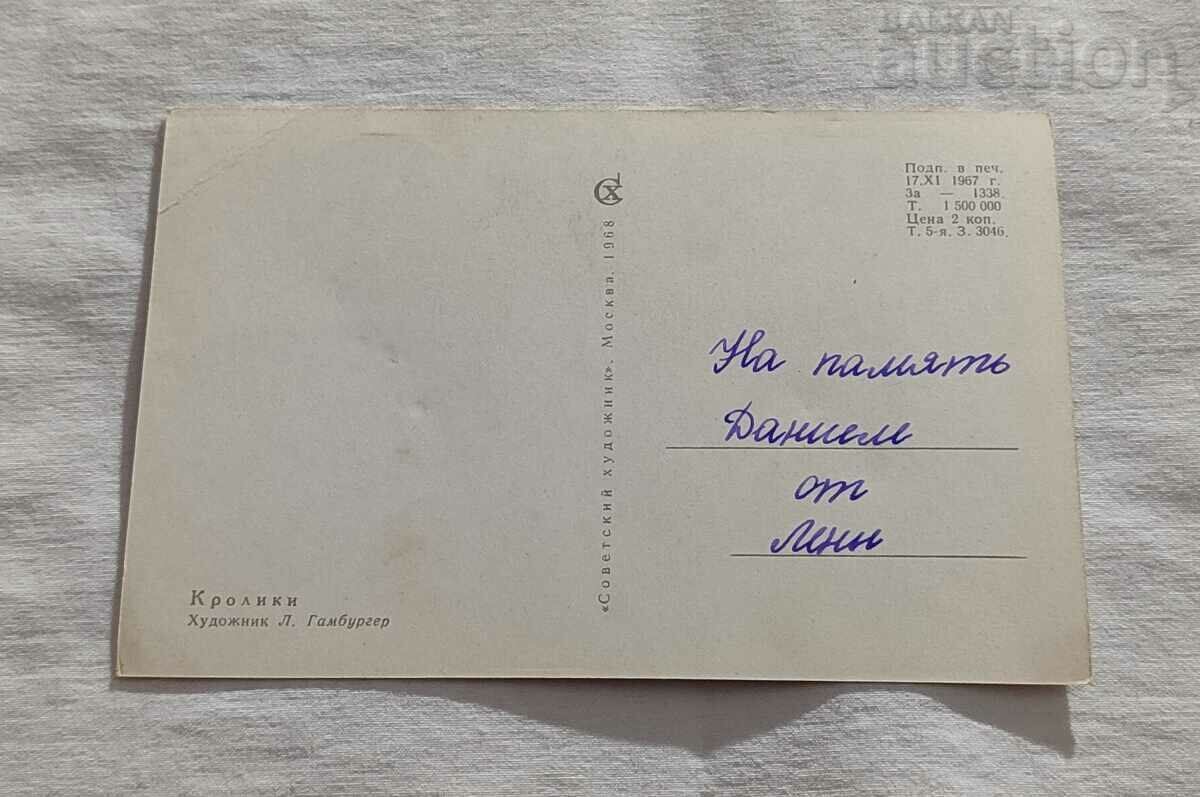 BALKAN
auction
СХ
Подп. в печ.
17.XI 1967 г.
За — 1338.
Т. 1 500 000
Цена 2 коп.
Т. 5-я. З. 3046.
«Советский художник». Москва. 1968
На память
Даниеле
от
Лены
Кролики
Художник Л. Гамбургер